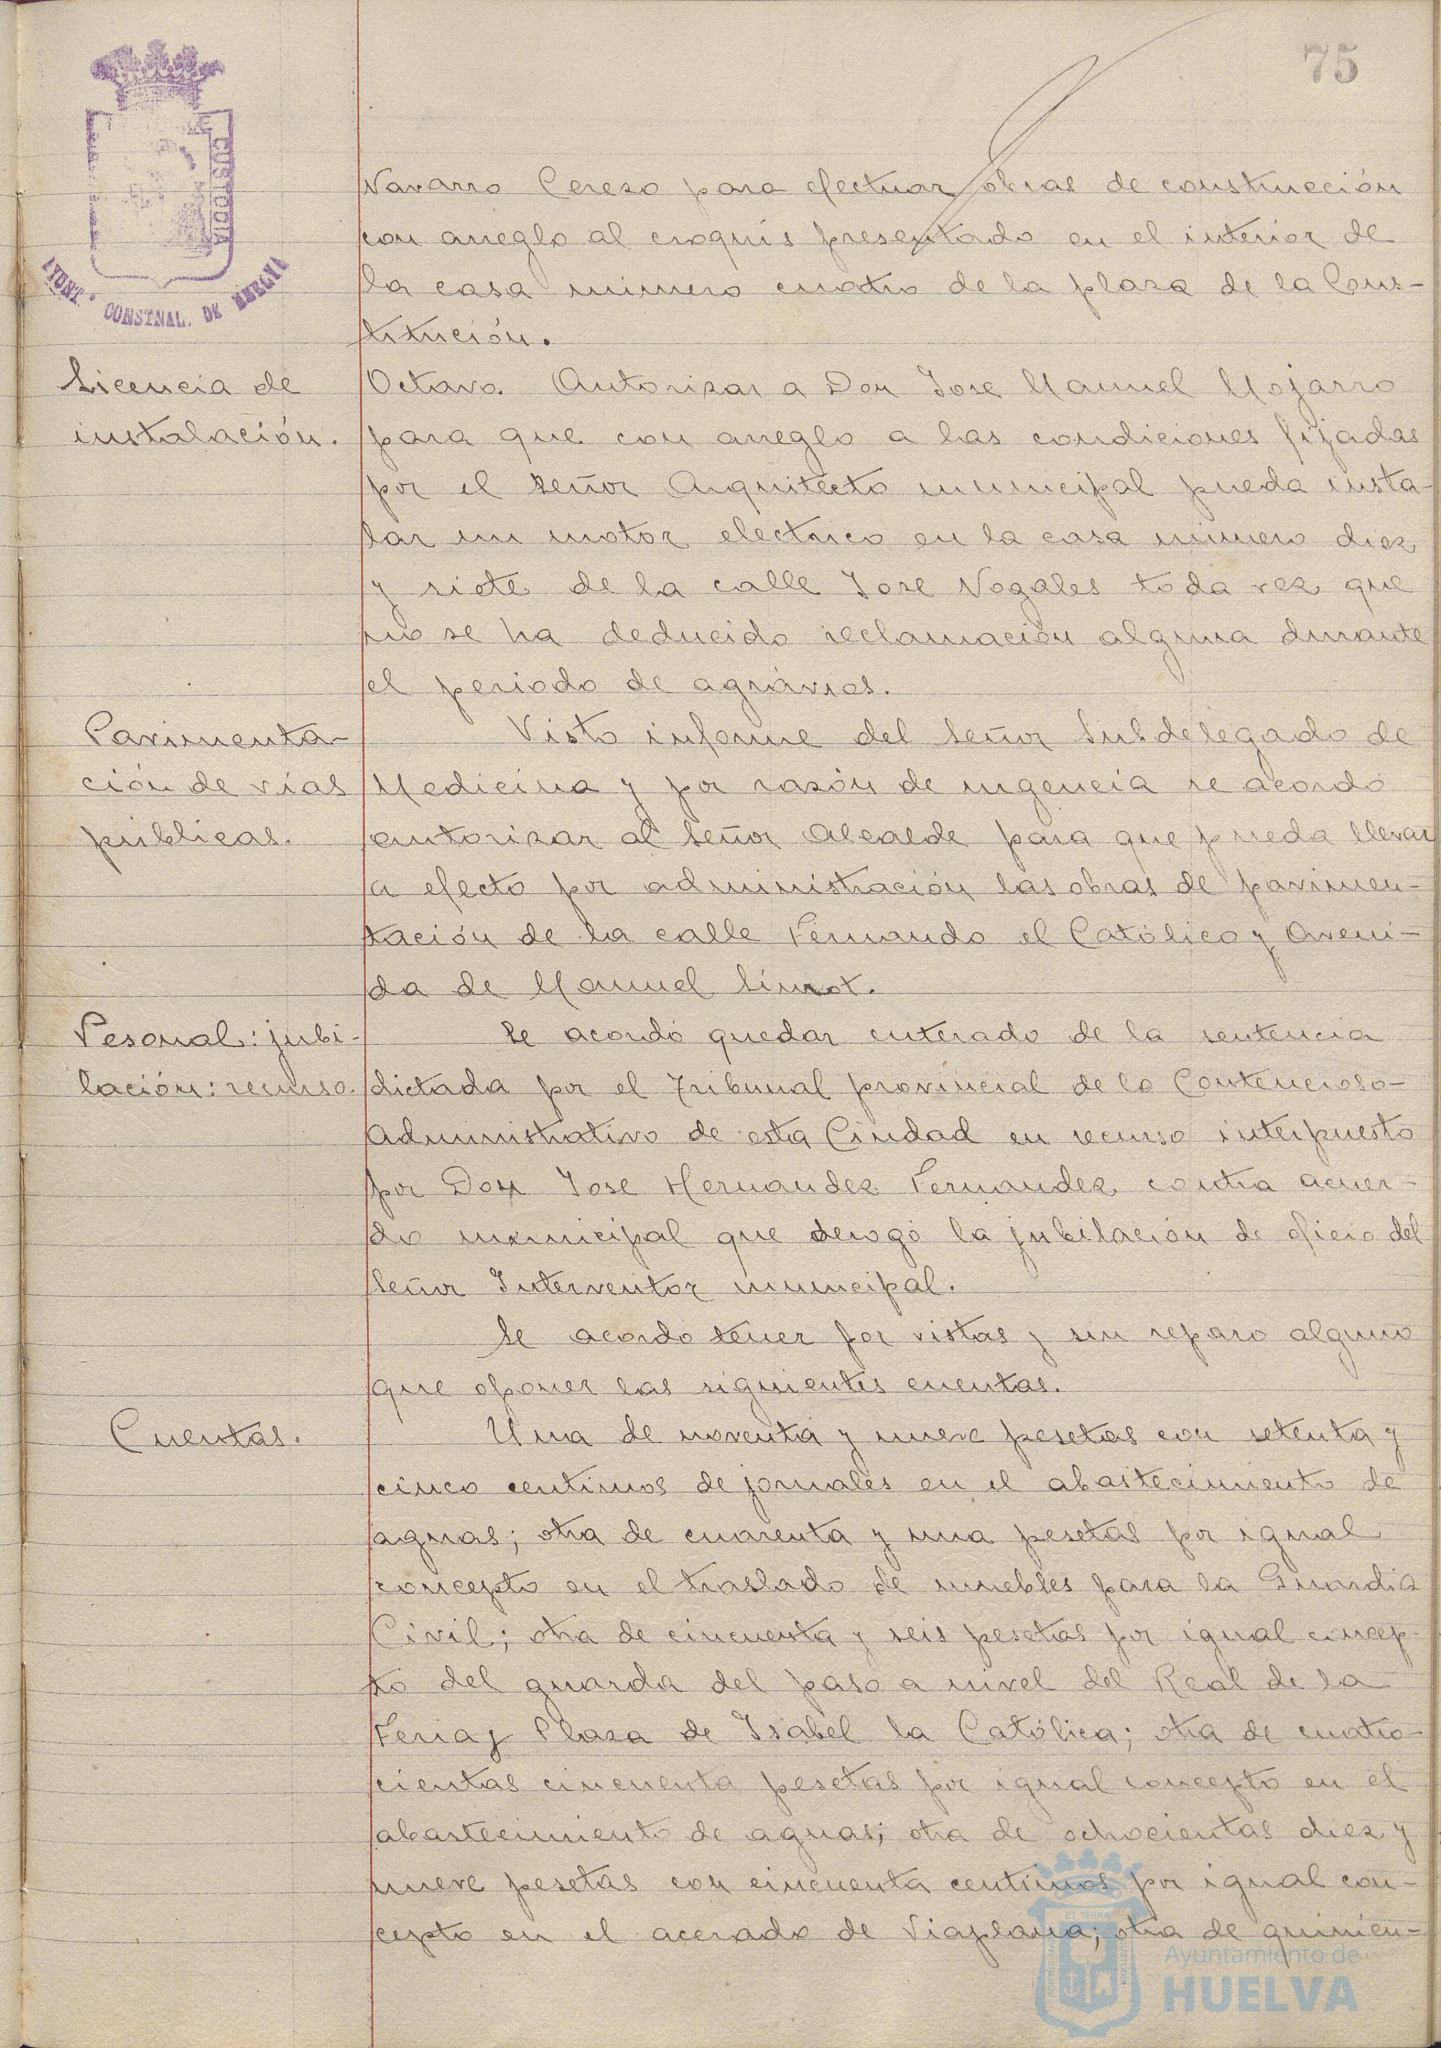 75
CUSTODIA
AYUNT.º CONSTNAL. DE HUELVA
Navarro Cerezo para efectuar obras de construcción
con arreglo al croquis presentado en el interior de
la casa número cuatro de la plaza de la Cons-
titución.
Licencia de
instalación.
Octavo. Autorizar a Don Jose Manuel Mojarro
para que con arreglo a las condiciones fijadas
por el señor Arquitecto municipal pueda insta-
lar un motor electrico en la casa número diez
y siete de la calle Jose Nogales toda vez que
no se ha deducido reclamación alguna durante
el periodo de agrávios.
Pavimenta-
ción de vias
públicas.
Visto informe del Señor Subdelegado de
Medicina y por razón de urgencia se acordó
autorizar al Señor Alcalde para que pueda llevar
a efecto por administración las obras de pavimen-
tación de la calle Fernando el Católico y Aveni-
da de Manuel Siurot.
Pesonal: jubi-
lación: recurso.
Se acordó quedar enterado de la sentencia
dictada por el Tribunal provincial de lo Contencioso-
Administrativo de esta Ciudad en recurso interpuesto
por Don Jose Hernandez Fernandez contra acuer-
do municipal que derogó la jubilación de oficio del
Señor Interventor municipal.
Se acordo tener por vistas y sin reparo alguno
que oponer las siguientes cuentas.
Cuentas.
Una de noventa y nueve pesetas con setenta y
cinco centimos de jornales en el abastecimiento de
aguas; otra de cuarenta y una pesetas por igual
concepto en el traslado de muebles para la Guardia
Civil; otra de cincuenta y seis pesetas por igual concep-
to del guarda del paso a nivel del Real de la
Feria y Plaza de Isabel la Católica; otra de cuatro-
cientas cincuenta pesetas por igual concepto en el
abastecimiento de aguas; otra de ochocientas diez y
nueve pesetas con cincuenta centimos por igual con-
cepto en el acerado de Viaplana; otra de quinien-
Ayuntamiento de
HUELVA